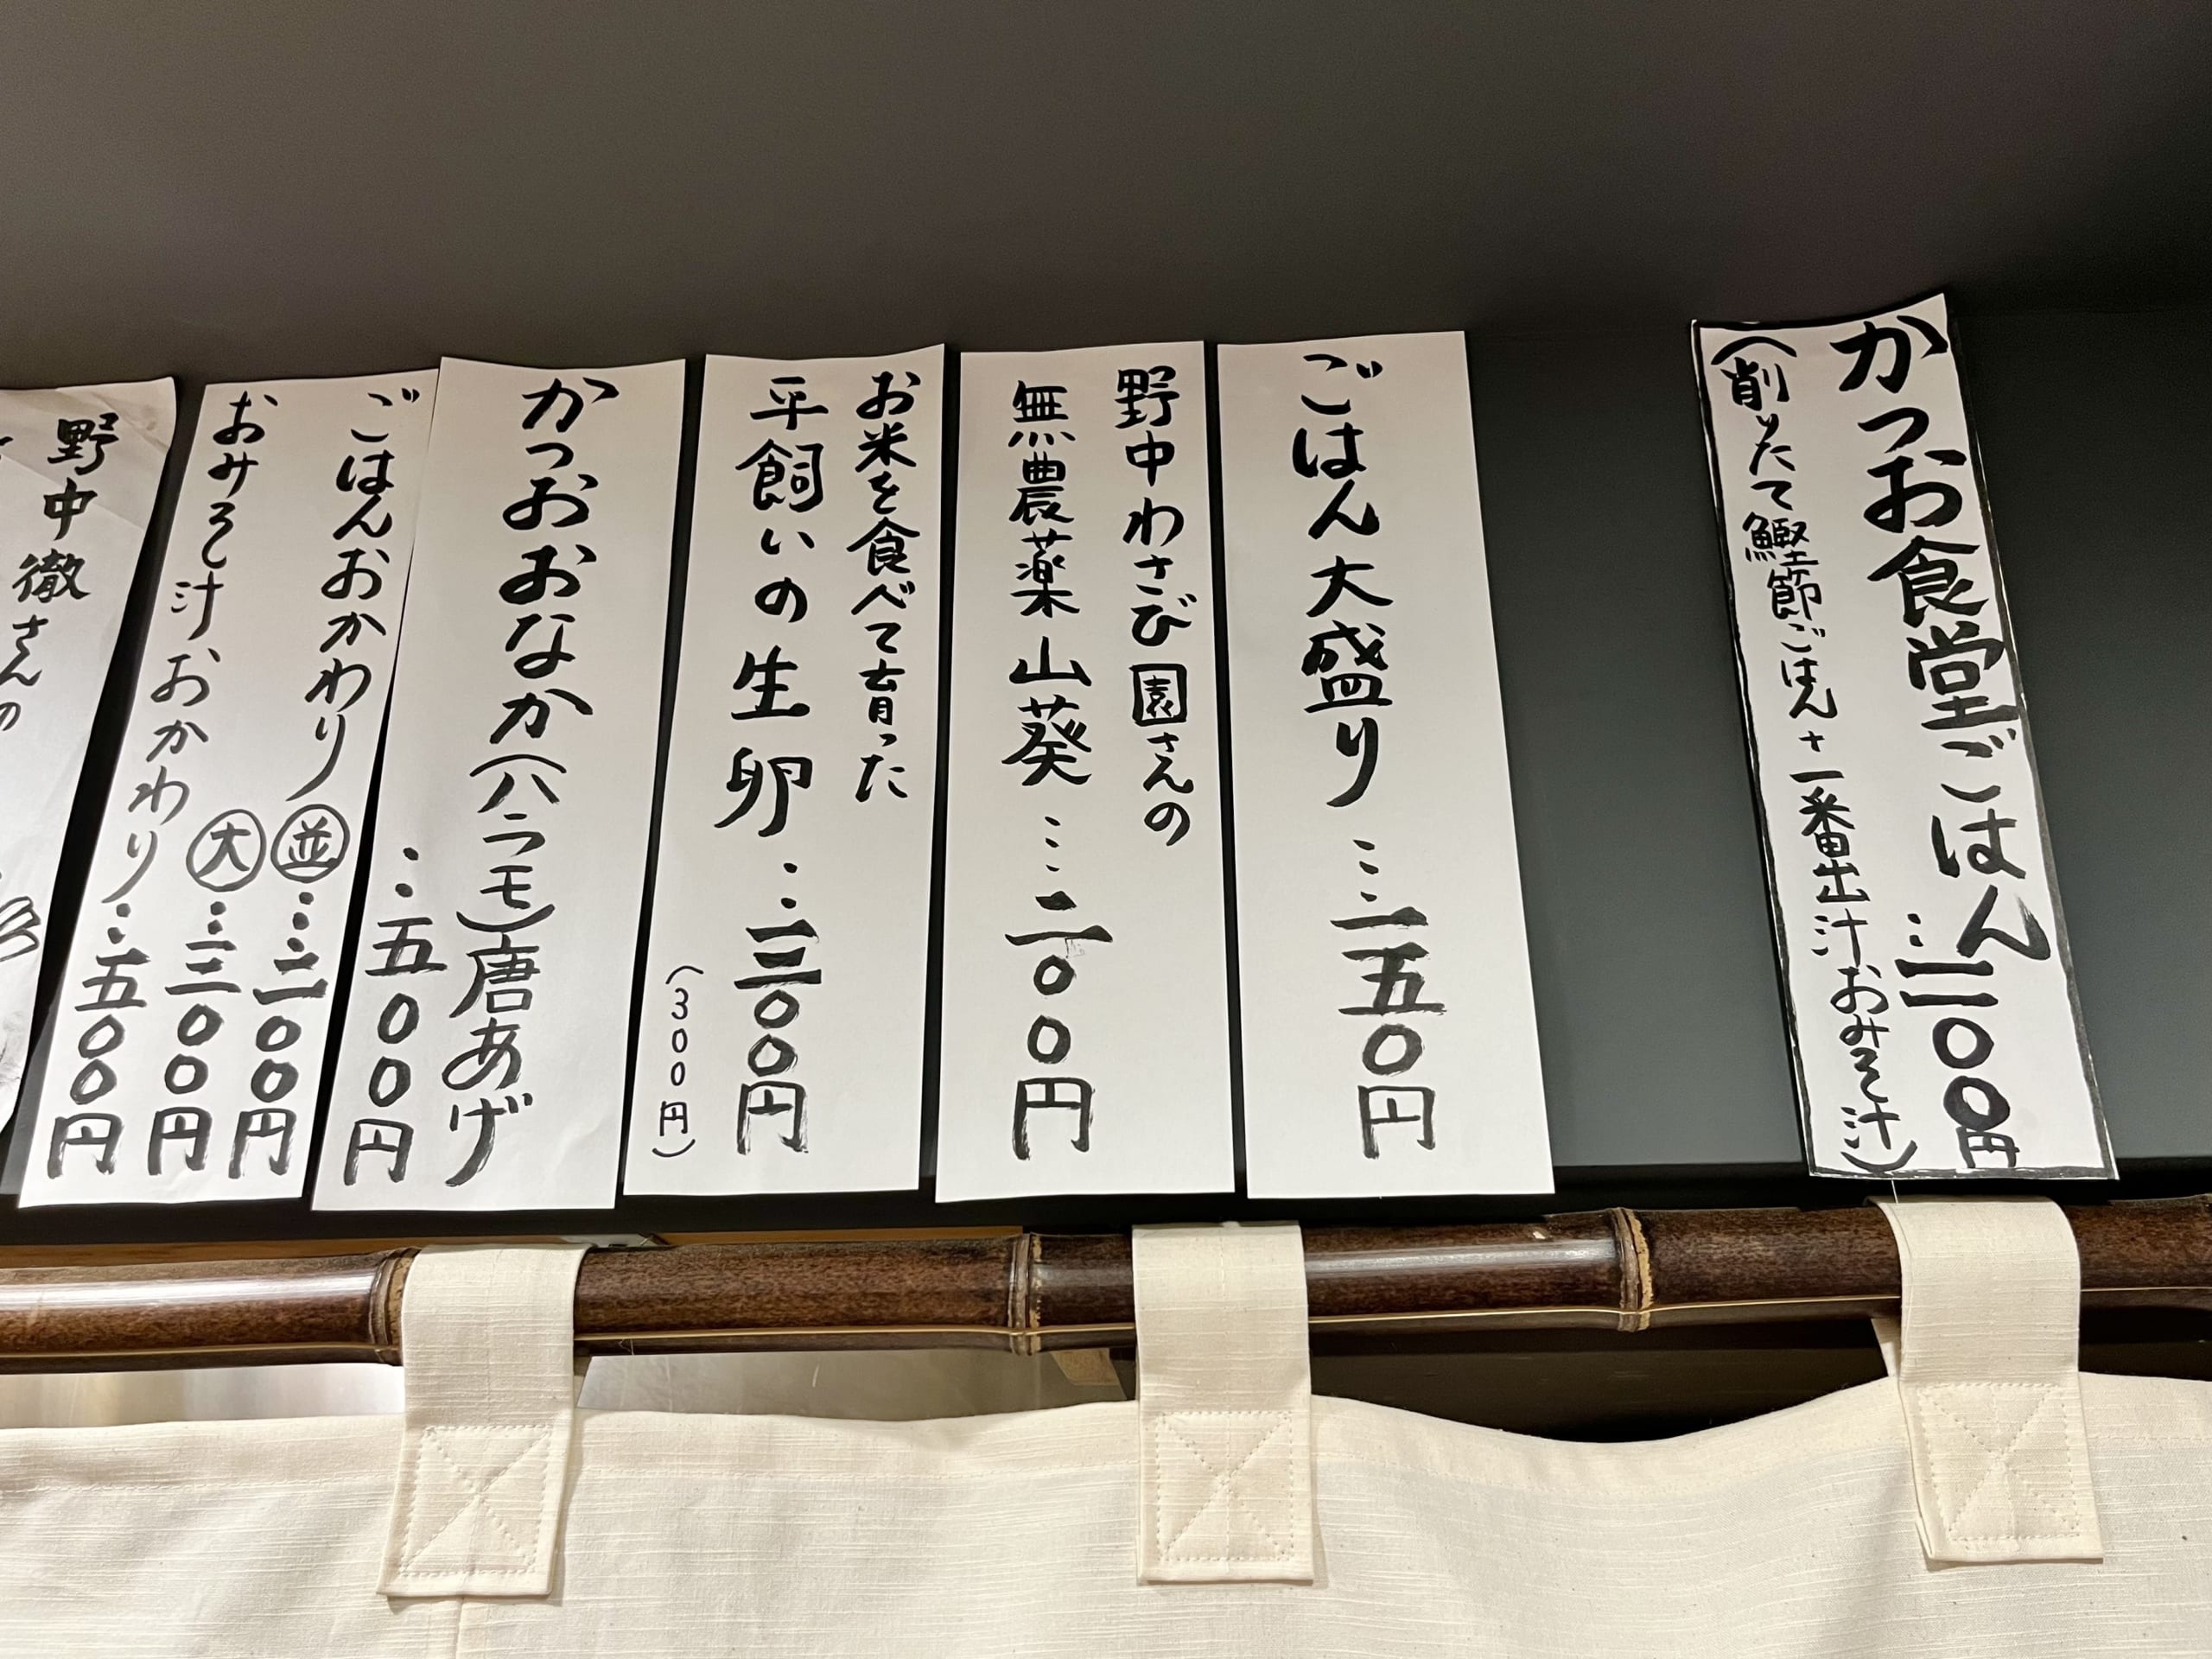 かつお食堂ごはん
（削りたて鰹節ごはん＋一番出汁おみそ汁）
ごはん大盛り…一五〇円
野中わさび園さんの
無農薬山葵…二〇〇円
お米を食べて育った
平飼いの生卵…三〇〇円
（300円）
かつおおなか（ハラモ）唐あげ
…五〇〇円
ごはんおかわり 並…二〇〇円
大…三〇〇円
おみそ汁おかわり…五〇〇円
野中徹さんの